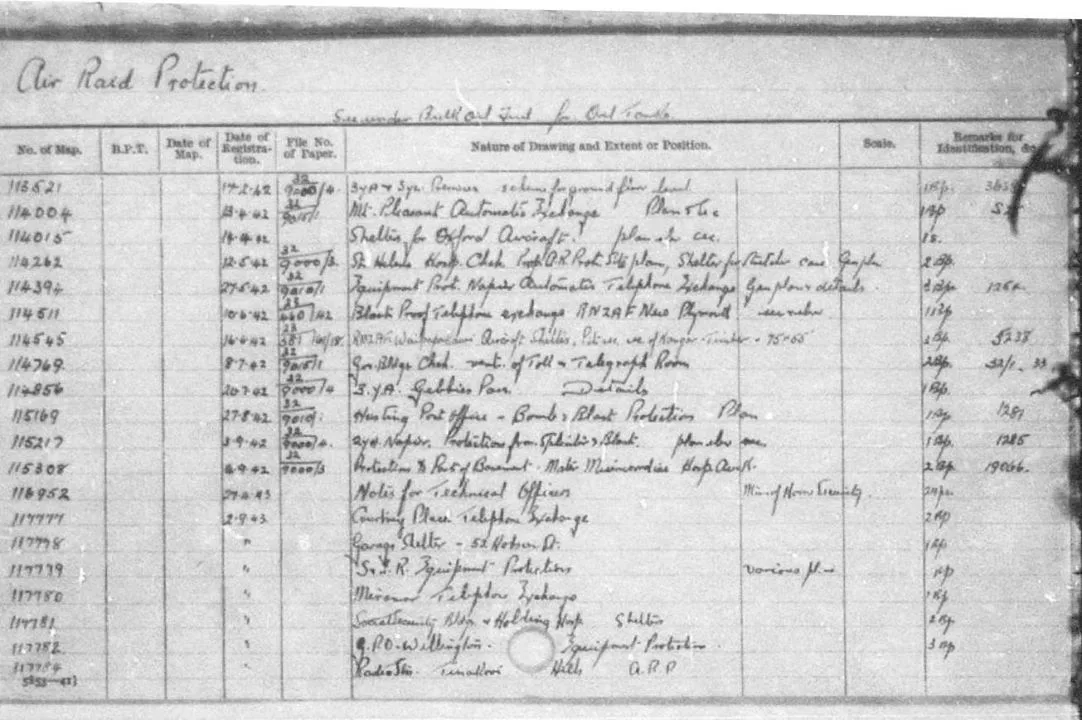 Air Raid Protection.
See under Bulk Oil Fuel for Oil Tanks
No. of Map. B.P.T. Date of Map. Date of Registration. File No. of Paper. Nature of Drawing and Extent or Position. Scale. Remarks for Identification, &c
113521 17.2.42 32/9000/4 scheme for ground floor level 1 Bp.
114004 13.4.42 32/9015/1 Mt. Pleasant Automatic Exchange Plan & Sec 1 Bp
114015 14.4.42 Shelters for Oxford Aircraft. plan elev. sec. 1 S.
114262 12.5.42 32/9000/3 St Helens Hosp. Chch. Prop. A.R. Prot. Site plan, Shelter for Stretcher case 2 Bp.
114394 27.5.42 32/9010/1 Equipment Prot. Napier Automatic Telephone Exchange Gen plan & details 3 Bp.
114511 10.6.42 23/ /42 Blast Proof Telephone exchange RNZAF New Plymouth 1 Bp
114545 16.6.42 23/381/ Aircraft Shelters, use of Hangar Timber - 75-65 2 Bp. 5238
114769 8.7.42 32/9015/1 Gov. Bldgs Chch. vent. of Toll & Telegraph Room 2 Bp. 32/1. 33
114856 20.7.42 32/9000/4 3.Y.A. Gebbies Pass. Details 1 Bp.
115169 27.8.42 32/9010/ Hastings Post Office - Bomb & Blast Protection Plan 1 Bp. 1281
115217 3.9.42 32/9000/4. 2YH. Napier. Protection from Splinters & Blast. plan elev sec. 1 Bp. 1285
115308 6.9.42 32/9000/3 Protection to Part of Basement. Mater Misericordiae Hosp Auck. 2 Bp. 19066.
116952 27.4.43 Notes for Technical Officers Min. of Home Security.
117777 2.9.43 Courtenay Place Telephone Exchange 2 Bp
117778 " Garage Shelter - 52 Hobson St. 1 Bp
117779 " Equipment Protection various plans
117780 " Miramar Telephone Exchange 1 Bp
117781 " Social Security Bldg. & Holding Hosp. Shelter 2 Bp.
117782 " G.P.O. Wellington. Equipment Protection. 3 Bp
117784 " Radio Stn. Tinakori Hills A.R.P
5853—41]